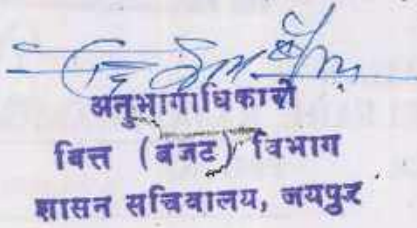 अनुभागाधिकारी
वित्त (बजट) विभाग
शासन सचिवालय, जयपुर